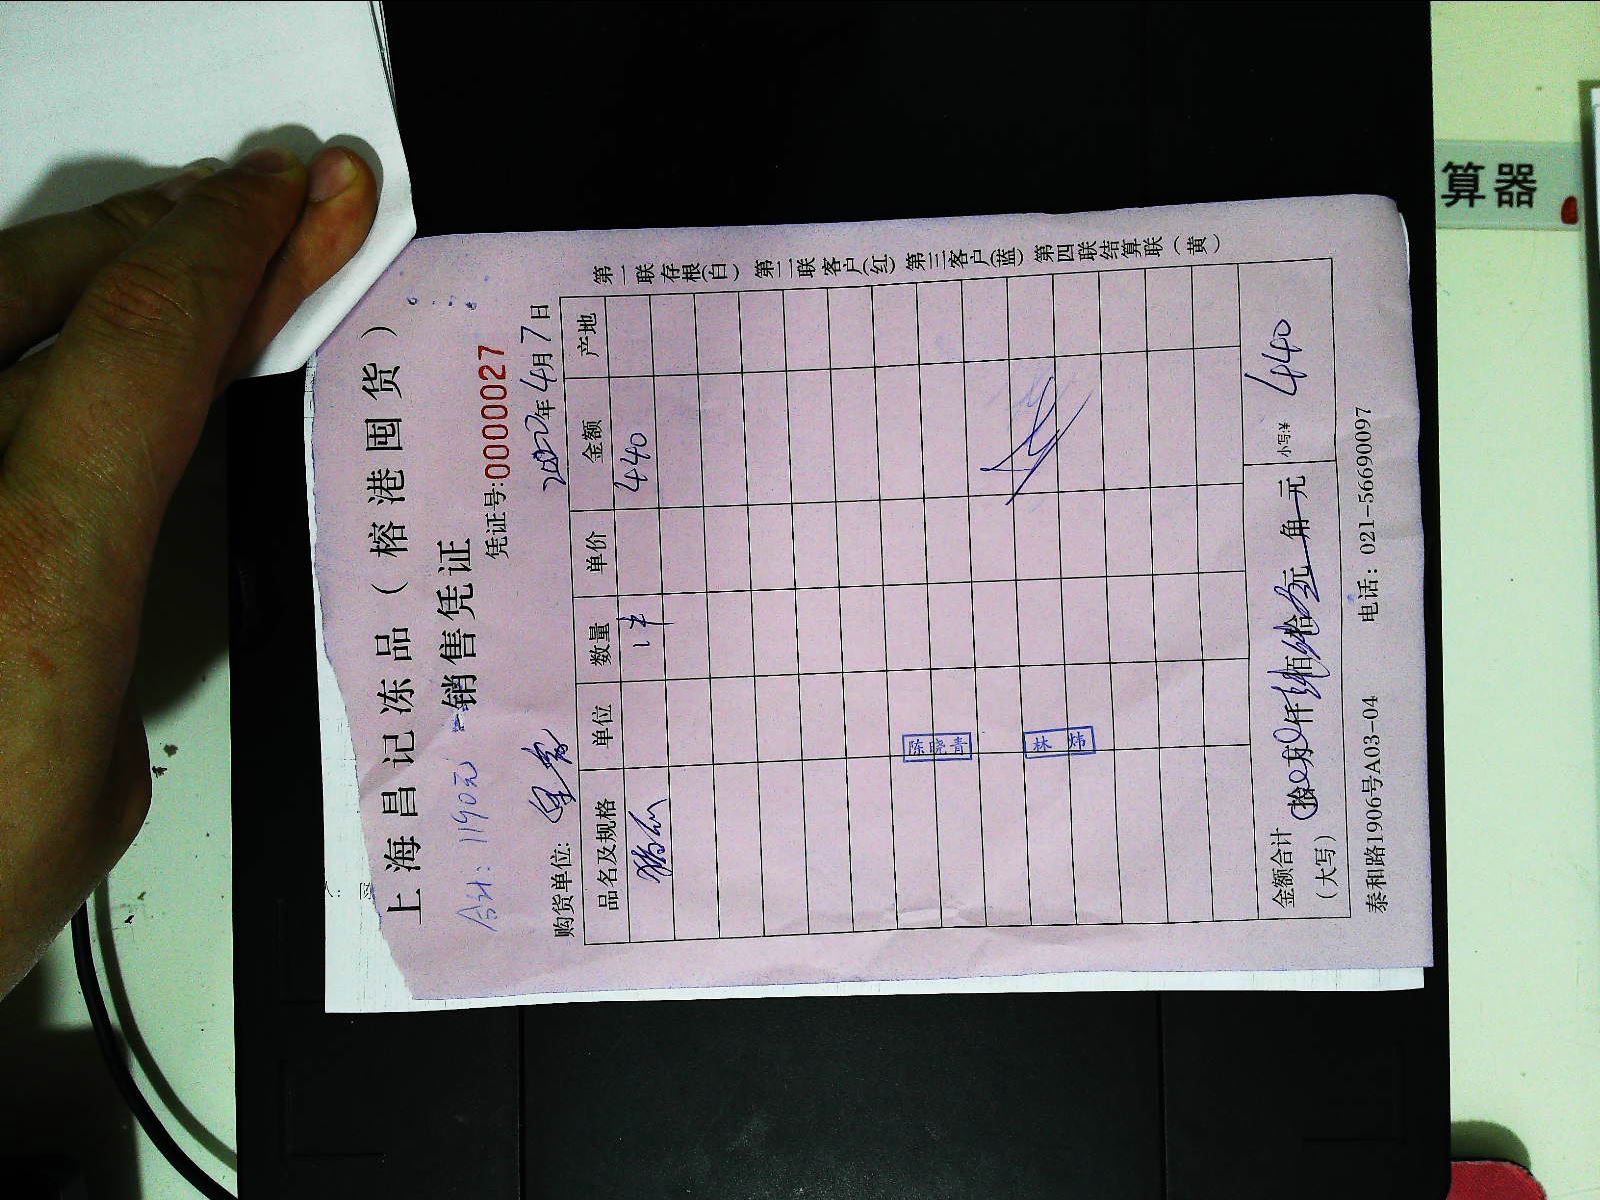 上海昌记冻品（榕港囤货）
合计：1190元
销售凭证
凭证号:0000027
购货单位:
2022年4月7日
品名及规格 单位 数量 单价 金额 产地
1件 440
陈晓青
林炜
金额合计（大写） 拾万仟肆佰肆拾元角元 小写:¥ 440
泰和路1906号A03-04 电话：021-56690097
第一联存根(白) 第二联客户(红) 第三客户(蓝) 第四联结算联(黄)
算器